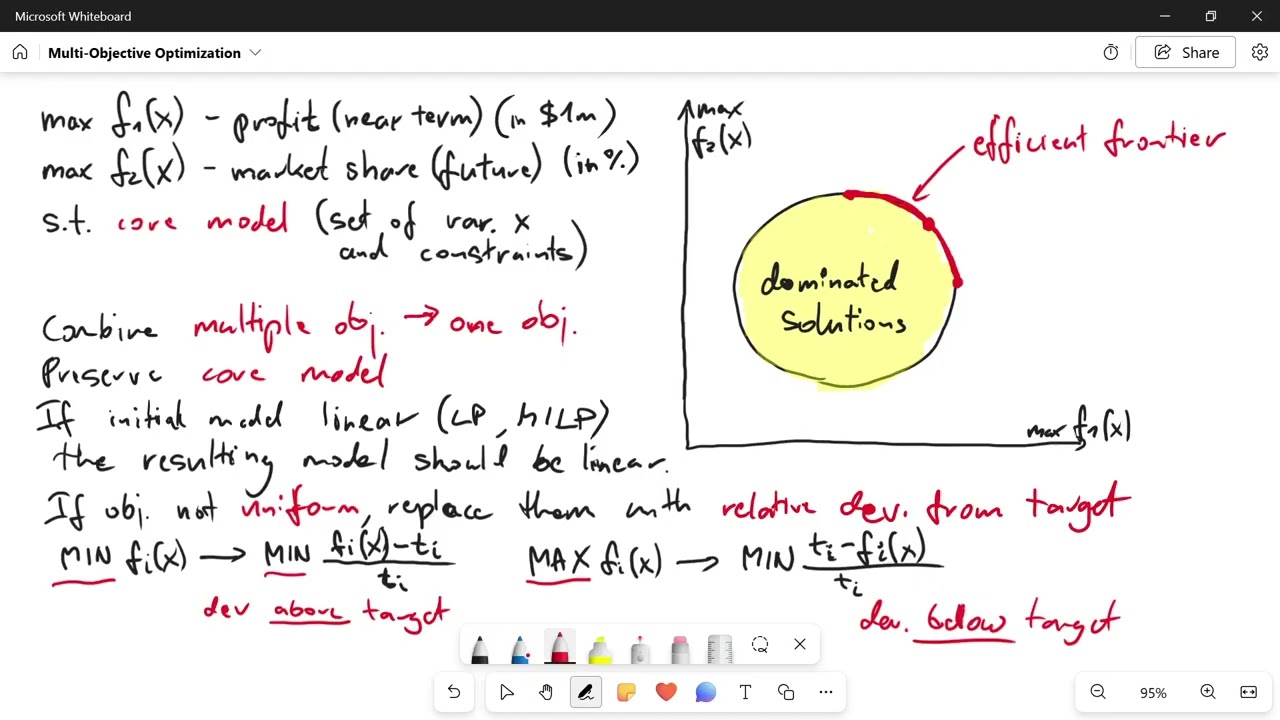 Microsoft Whiteboard
Multi-Objective Optimization
Share
max f₁(x) - profit (near term) (in $1m)
max f₂(x) - market share (future) (in %)
s.t. core model (set of var. x
and constraints)
Combine multiple obj. → one obj.
Preserve core model
If initial model linear (LP, MILP)
the resulting model should be linear.
max
f₂(x)
efficient frontier
dominated
solutions
max f₁(x)
If obj. not uniform, replace them with relative dev. from target
MIN fᵢ(x) → MIN (fᵢ(x)-tᵢ)/tᵢ MAX fᵢ(x) → MIN (tᵢ-fᵢ(x))/tᵢ
dev above target
dev. below target
95%